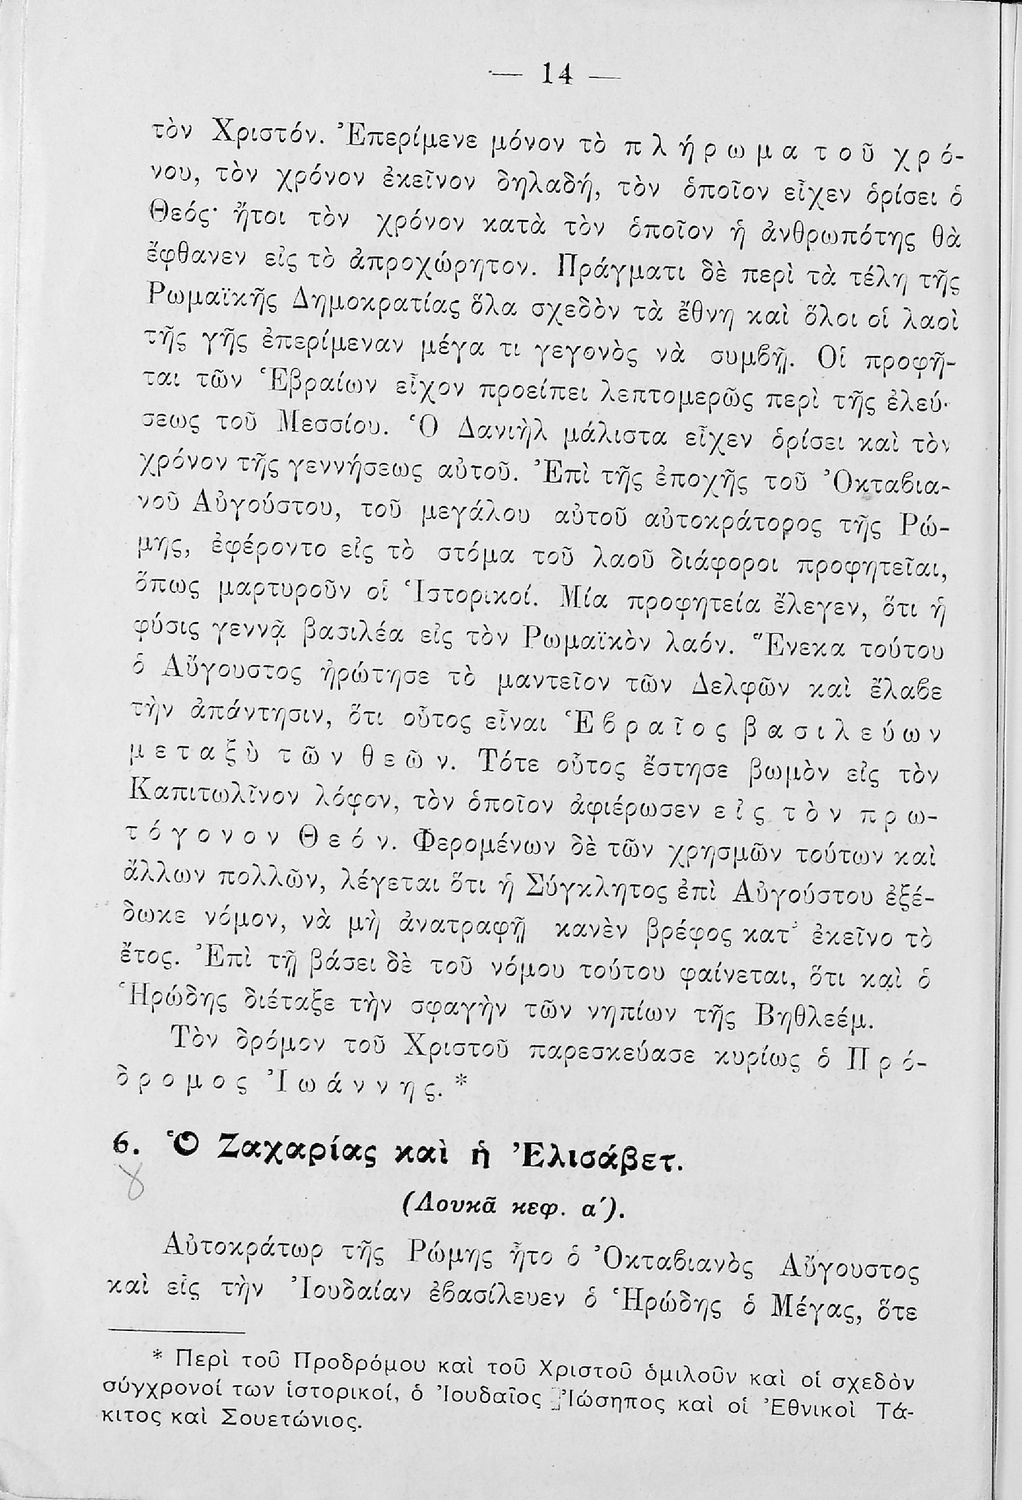 — 14 —
τὸν Χριστόν. Ἐπερίμενε μόνον τὸ π λ ή ρ ω μ α τ ο ῦ χ ρ ό-
νου, τὸν χρόνον ἐκεῖνον δηλαδή, τὸν ὁποῖον εἶχεν ὁρίσει ὁ
Θεός· ἤτοι τὸν χρόνον κατὰ τὸν ὁποῖον ἡ ἀνθρωπότης θὰ
ἔφθανεν εἰς τὸ ἀπροχώρητον. Πράγματι δὲ περὶ τὰ τέλη τῆς
Ρωμαϊκῆς Δημοκρατίας ὅλα σχεδὸν τὰ ἔθνη καὶ ὅλοι οἱ λαοὶ
τῆς γῆς ἐπερίμεναν μέγα τι γεγονὸς νὰ συμβῇ. Οἱ προφῆ-
ται τῶν Ἑβραίων εἶχον προείπει λεπτομερῶς περὶ τῆς ἐλεύ-
σεως τοῦ Μεσσίου. Ὁ Δανιὴλ μάλιστα εἶχεν ὁρίσει καὶ τὸν
χρόνον τῆς γεννήσεως αὐτοῦ. Ἐπὶ τῆς ἐποχῆς τοῦ Ὀκταβια-
νοῦ Αὐγούστου, τοῦ μεγάλου αὐτοῦ αὐτοκράτορος τῆς Ρώ-
μης, ἐφέροντο εἰς τὸ στόμα τοῦ λαοῦ διάφοροι προφητεῖαι,
ὅπως μαρτυροῦν οἱ Ἱστορικοί. Μία προφητεία ἔλεγεν, ὅτι ἡ
φύσις γεννᾷ βασιλέα εἰς τὸν Ρωμαϊκὸν λαόν. Ἕνεκα τούτου
ὁ Αὔγουστος ἠρώτησε τὸ μαντεῖον τῶν Δελφῶν καὶ ἔλαβε
τὴν ἀπάντησιν, ὅτι οὗτος εἶναι Ἑ β ρ α ῖ ο ς β α σ ι λ ε ύ ω ν
μ ε τ α ξ ὺ τ ῶ ν θ ε ῶ ν. Τότε οὗτος ἔστησε βωμὸν εἰς τὸν
Καπιτωλῖνον λόφον, τὸν ὁποῖον ἀφιέρωσεν ε ἰ ς τ ὸ ν π ρ ω-
τ ό γ ο ν ο ν Θ ε ό ν. Φερομένων δὲ τῶν χρησμῶν τούτων καὶ
ἄλλων πολλῶν, λέγεται ὅτι ἡ Σύγκλητος ἐπὶ Αὐγούστου ἐξέ-
δωκε νόμον, νὰ μὴ ἀνατραφῇ κανὲν βρέφος κατ᾽ ἐκεῖνο τὸ
ἔτος. Ἐπὶ τῇ βάσει δὲ τοῦ νόμου τούτου φαίνεται, ὅτι καὶ ὁ
Ἡρώδης διέταξε τὴν σφαγὴν τῶν νηπίων τῆς Βηθλεέμ.
Τὸν δρόμον τοῦ Χριστοῦ παρεσκεύασε κυρίως ὁ Π ρ ό-
δ ρ ο μ ο ς Ἰ ω ά ν ν η ς. *
6. Ὁ Ζαχαρίας καὶ ἡ Ἐλισάβετ.
8
(Λουκᾶ κεφ. α΄).
Αὐτοκράτωρ τῆς Ρώμης ἦτο ὁ Ὀκταβιανὸς Αὔγουστος
καὶ εἰς τὴν Ἰουδαίαν ἐβασίλευεν ὁ Ἡρώδης ὁ Μέγας, ὅτε
* Περὶ τοῦ Προδρόμου καὶ τοῦ Χριστοῦ ὁμιλοῦν καὶ οἱ σχεδὸν
σύγχρονοί των ἱστορικοί, ὁ Ἰουδαῖος Ἰώσηπος καὶ οἱ Ἐθνικοὶ Τά-
κιτος καὶ Σουετώνιος.